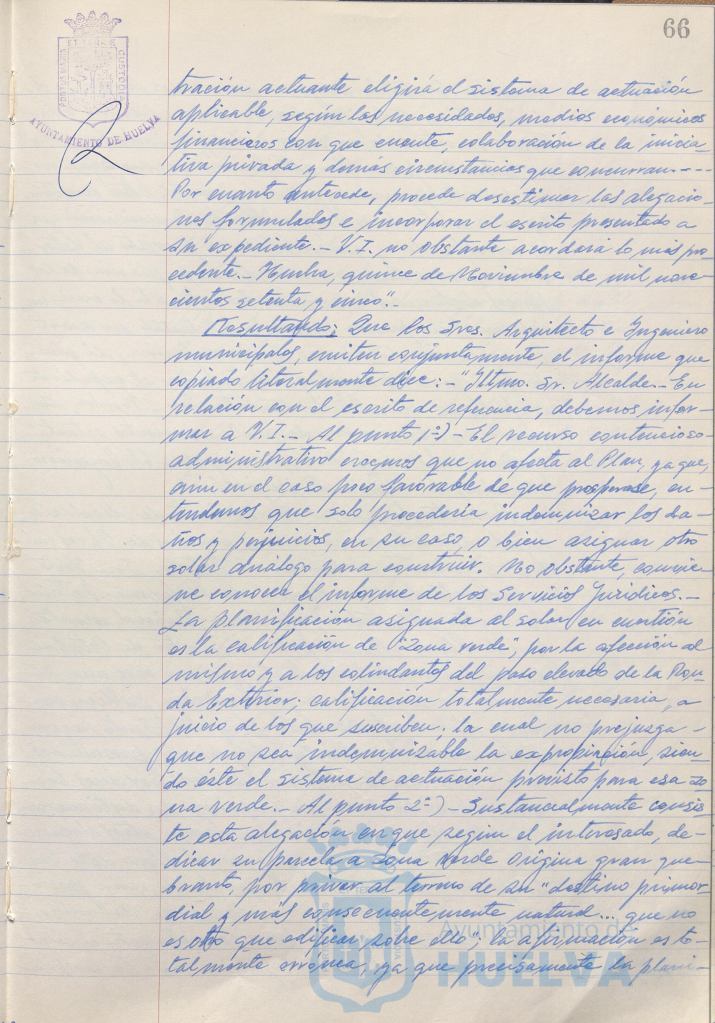 66
PORTUS MARIS
ET TERRAE
CUSTODIA
AYUNTAMIENTO DE HUELVA
tración actuante eligirá el sistema de actuación
aplicable, según las necesidades, medios económicos
financieros con que cuente, colaboración de la inicia-
tiva privada y demás circunstancias que concurran.---
Por cuanto antecede, procede desestimar las alegacio-
nes formuladas e incorporar el escrito presentado a
su expediente.- V.I. no obstante acordará lo más pro-
cedente.- Huelva, quince de Noviembre de mil nove-
cientos setenta y cinco".-
Resultando: Que los Sres. Arquitecto e Ingeniero
municipales, emiten conjuntamente, el informe que
copiado literalmente dice: - "Iltmo. Sr. Alcalde.- En
relación con el escrito de referencia, debemos infor-
mar a V.I.- Al punto 1º)- El recurso contencioso-
administrativo creemos que no afecta al Plan, ya que,
aún en el caso poco favorable de que prosperase, en-
tendemos que solo procedería indemnizar los da-
ños y perjuicios, en su caso o bien asignar otro
solar análogo para construir. No obstante, convie-
ne conocer el informe de los Servicios Jurídicos.-
La planificación asignada al solar en cuestión
es la calificación de "Zona verde", por la afección al
mismo y a los colindantes del paso elevado de la Ron-
da Exterior; calificación totalmente necesaria, a
juicio de los que suscriben; la cual no prejuzga -
que no sea indemnizable la expropiación, sien-
do éste el sistema de actuación previsto para esa zo-
na verde.- Al punto 2º)- Sustancialmente consis-
te esta alegación en que según el interesado, de-
dicar su parcela a zona verde origina gran que-
branto, por privar al terreno de su "destino primor-
dial y más consecuentemente natural... que no
es otro que edificar sobre ello"; la afirmación es to-
talmente errónea, ya que precisamente la plani-
Ayuntamiento de
HUELVA